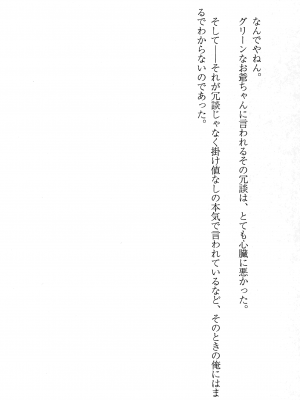 なんでやねん。
グリーンなお爺ちゃんに言われるその冗談は、とても心臓に悪かった。
そして――それが冗談じゃなく掛け値なしの本気で言われているなど、そのときの俺にはま
るでわからないのであった。